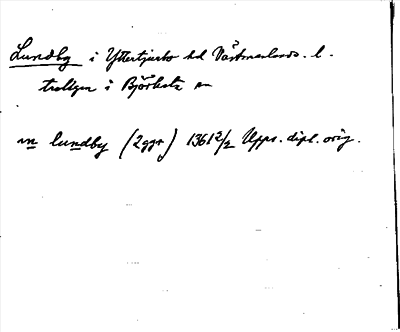 Lundby i Yttertjurbo hd Västmanlands. l.
troligen i Björksta sn
in lundby (2 ggr) 1361 2/2 Upps. dipl. orig.